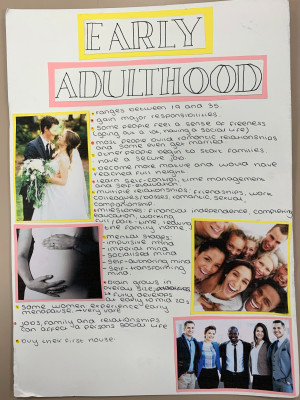 EARLY
ADULTHOOD
ranges between 19 and 35.
gain major responsibilities.
some people feel a sense of freeness
(going out a lot, having a social life)
most people build romantic relationships
and some even get married.
other people begin to start families
have a secure job.
become more mature and would have
reached full height
learn self-control, time management
and self-evaluation.
multiple relationships: friendships, work
colleagues/bosses, romantic, sexual,
companionship
milestones: financial independence, completing
education, working
full/part-time, leaving
the family home
mental stages:
- impulsive mind
- imperial mind
- socialised mind
- self-authoring mind
- self-transforming
mind.
brain grows in
overall size
& fully develops
at early to mid 20s
some women experience early
menopause → very rare
jobs, family and relationships
can affect a persons social life
buy their first house.